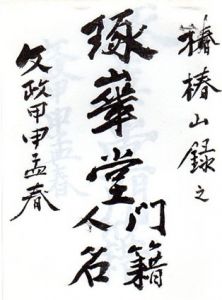 椿椿山録之
琢華堂門籍
人名
文政甲申孟春